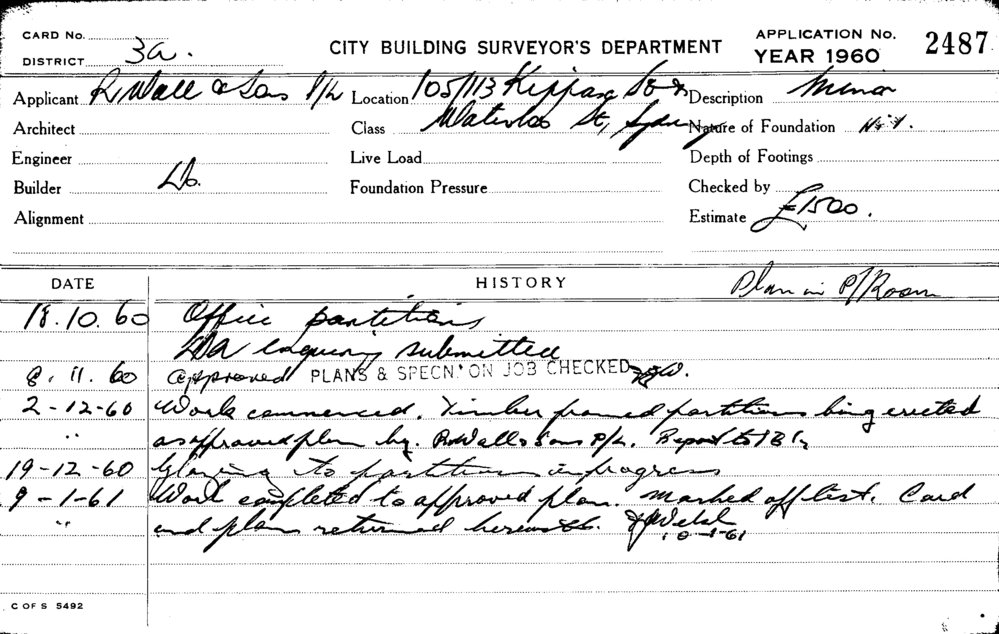 CARD No.
DISTRICT 3a.
CITY BUILDING SURVEYOR'S DEPARTMENT
APPLICATION No.
YEAR 1960
2487
Applicant R. Wall & Sons P/L Location 105/113 Kippax St & Description Minor
Architect Class Waterloo St, Sydney Nature of Foundation
Engineer Live Load Depth of Footings
Builder Do. Foundation Pressure Checked by
Alignment Estimate £1500.
DATE HISTORY Plan in P/Room
18.10.60 Office partitions
DA enquiry submitted
8.11.60 approved PLANS & SPECN. ON JOB CHECKED
2-12-60 Work commenced. Timber framed partitions being erected
" as approved plan by R Wall & Sons P/L. Report to
19-12-60 Glazing to partitions in progress
9-1-61 Work completed to approved plan. Marked off list. Card
" and plan returned herewith. Welsh
10-1-61
C OF S 5492